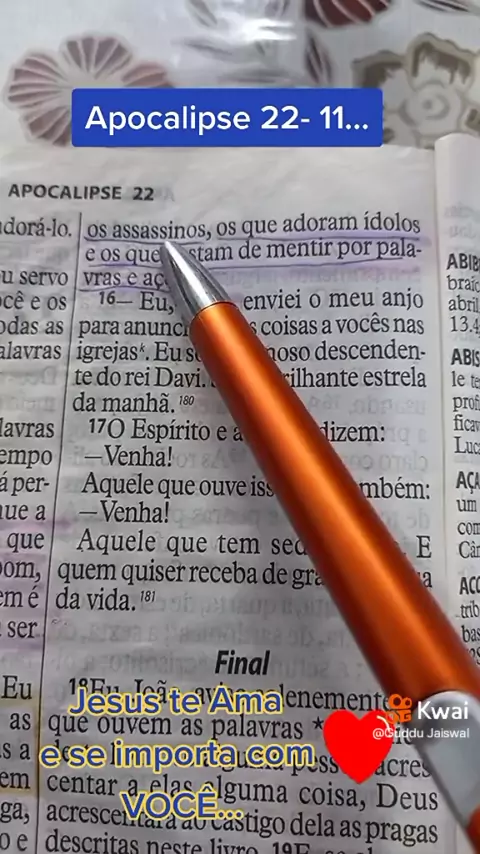 Apocalipse 22- 11...
APOCALIPSE 22
adorá-lo.
u servo
ocê e os
odas as
alavras
lavras
empo
á per-
nue a
que
oom,
em é
ser
Eu
as
s a
em
ga,
o e
os assassinos, os que adoram ídolos
e os que stam de mentir por pala-
vras e aç
16— Eu, enviei o meu anjo
para anunc s coisas a vocês nas
igrejas*. Eu s noso descenden-
te do rei Davi. rilhante estrela
da manhã. 180
17O Espírito e a dizem:
—Venha!
Aquele que ouve iss mbém:
—Venha!
Aquele que tem sed E
quem quiser receba de gra a
da vida. 181
Final
18Eu, João, aviso solenemente
que ouvem as palavras *
alguma pess acres
centar a elas alguma coisa, Deus
acrescentará ao castigo dela as pragas
descritas neste livro. 19E se
ABIB
braic
abril
13.4
ABIS
le te
prof
ficav
Luca
AÇA
um
com
Cân
ACO
trib
bas
Jesus te Ama
e se importa com
VOCÊ...
Kwai
@Guddu Jaiswal